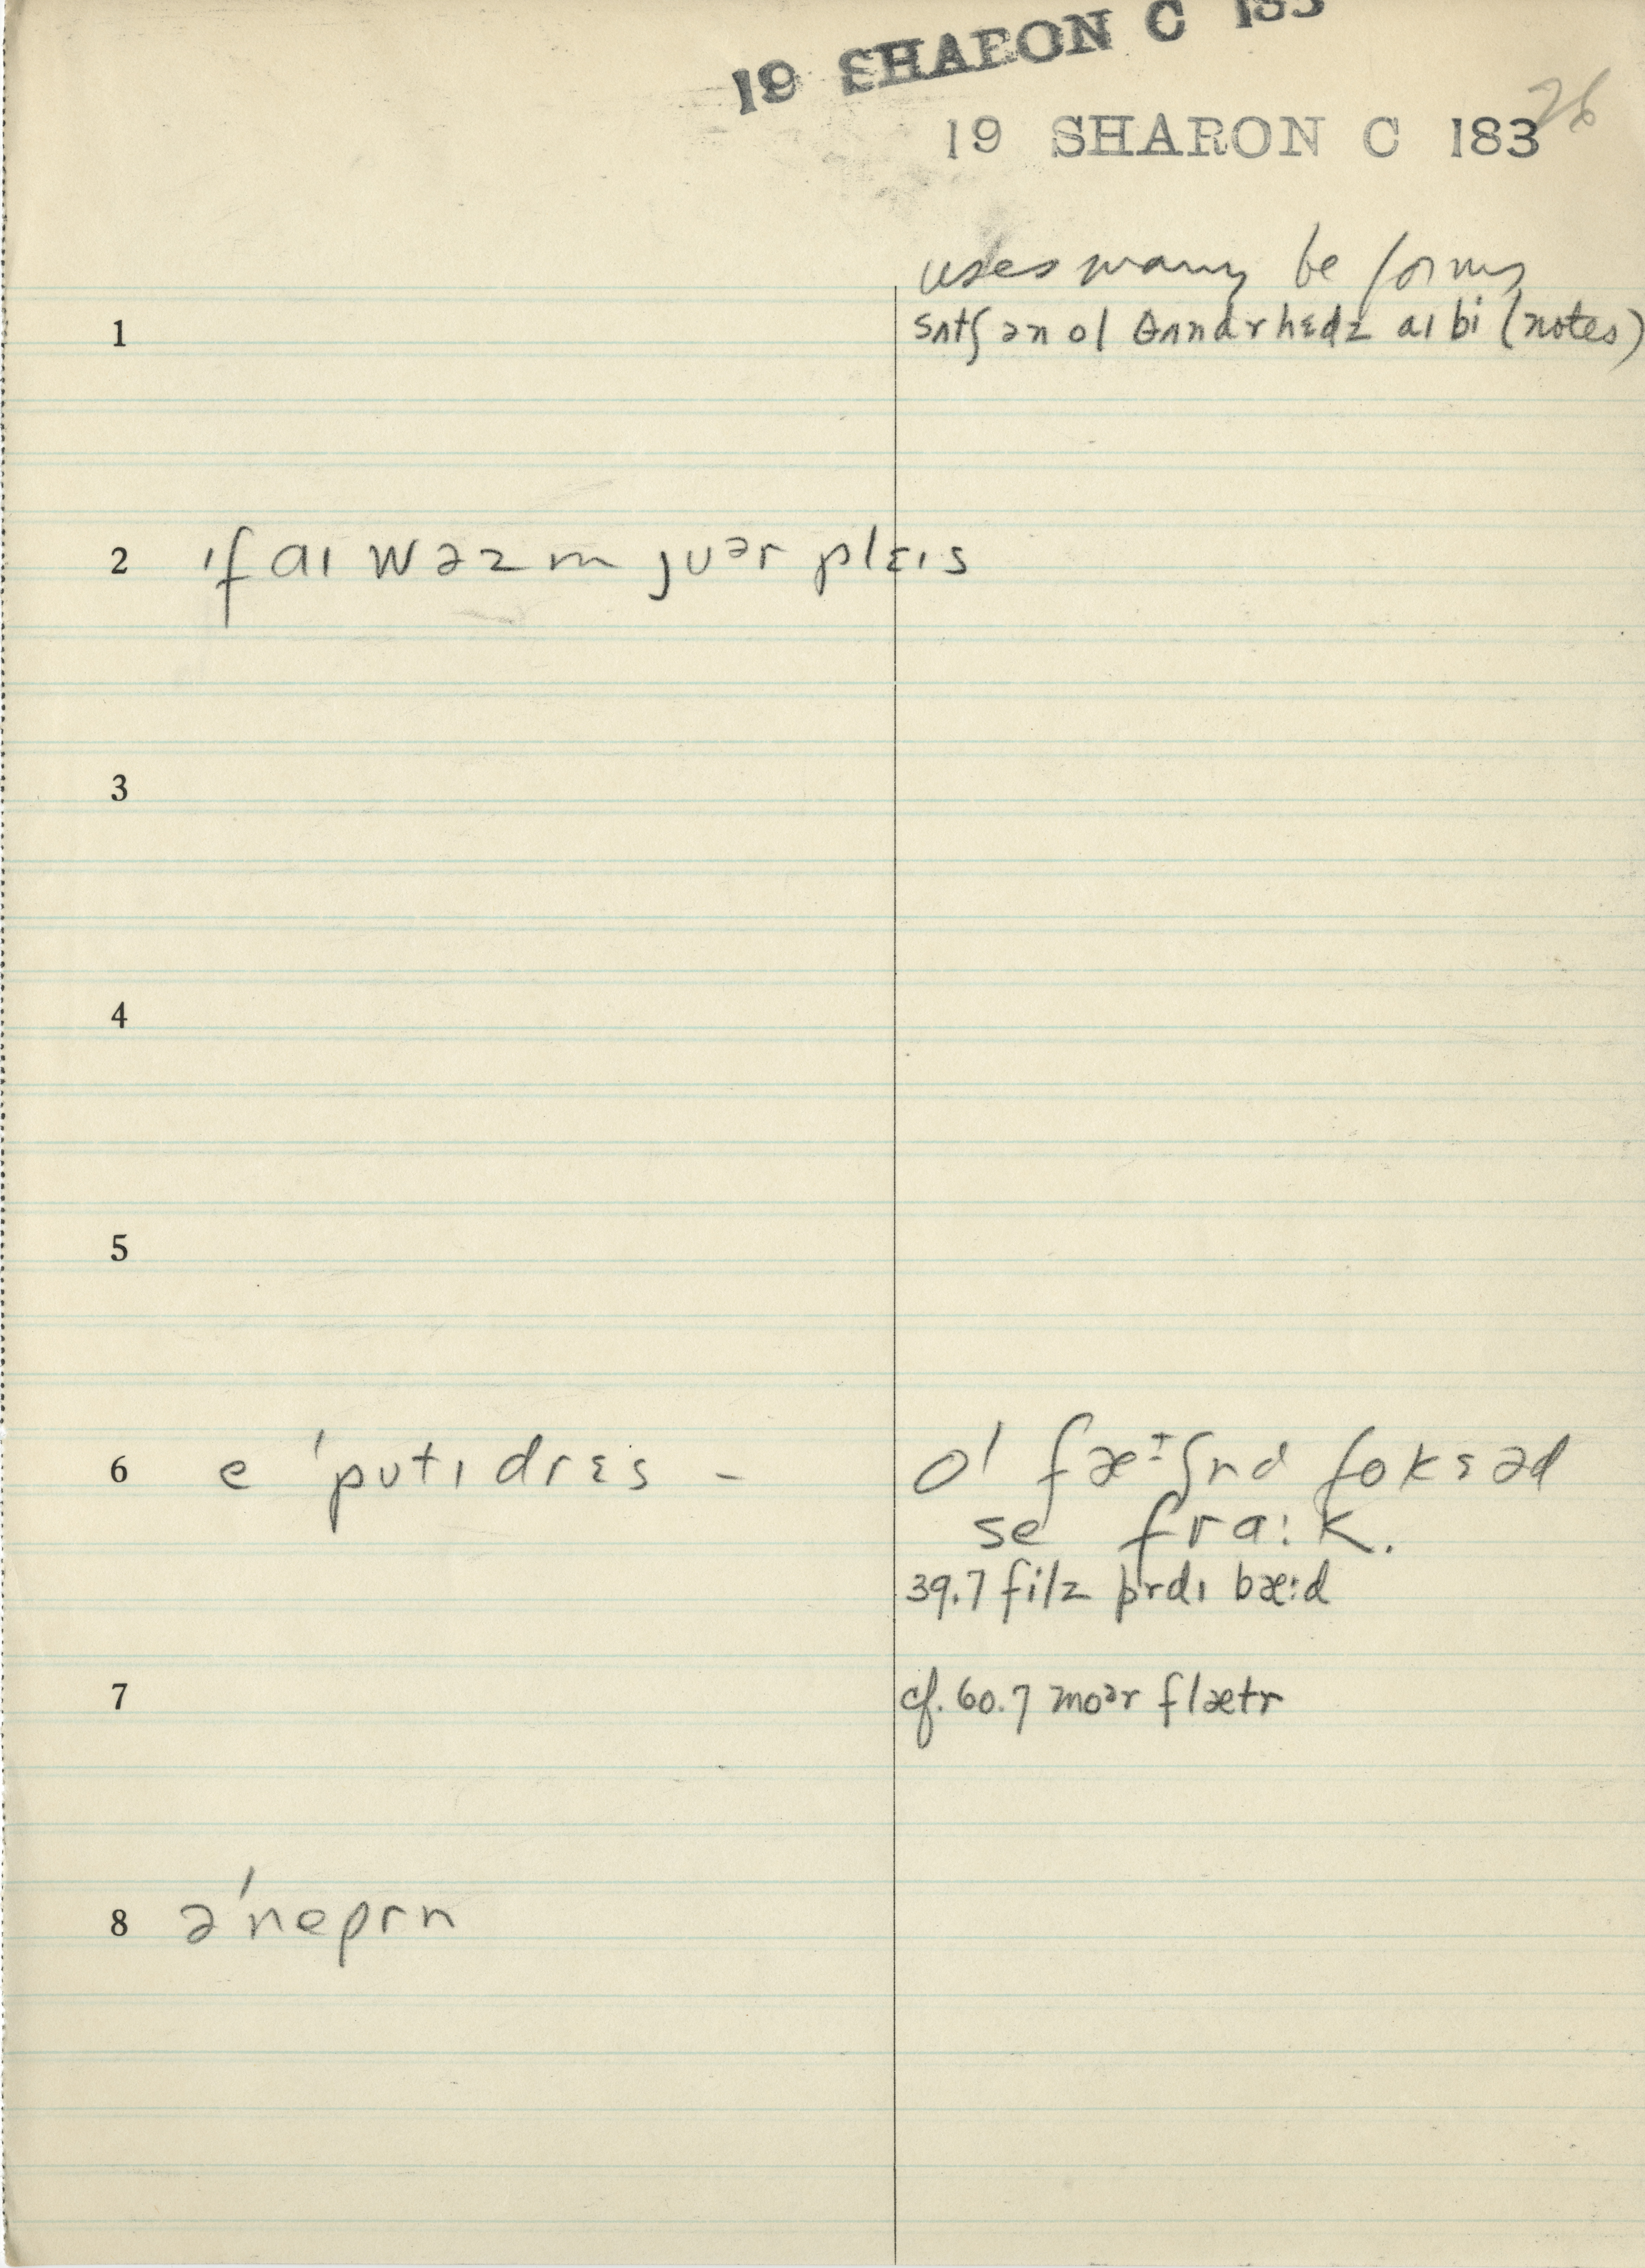 19 SHARON C 183
19 SHARON C 183
26
uses many be forms
1 sʌtʃ ən ol θʌndɚhɛdz aɪ bi (notes)
2 ɪf aɪ wəz ɪn juər plɛɪs
3
4
5
6 e 'putɪ drɛs –
ol fæɪʃnd fok sɛd
se fra:k.
39.7 filz prdɪ bæ:d
7 cf. 60.7 moər flætr
8 ə'neprn